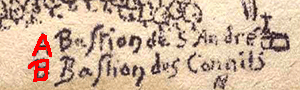 A Bastion de S^t André
B Bastion des Connils